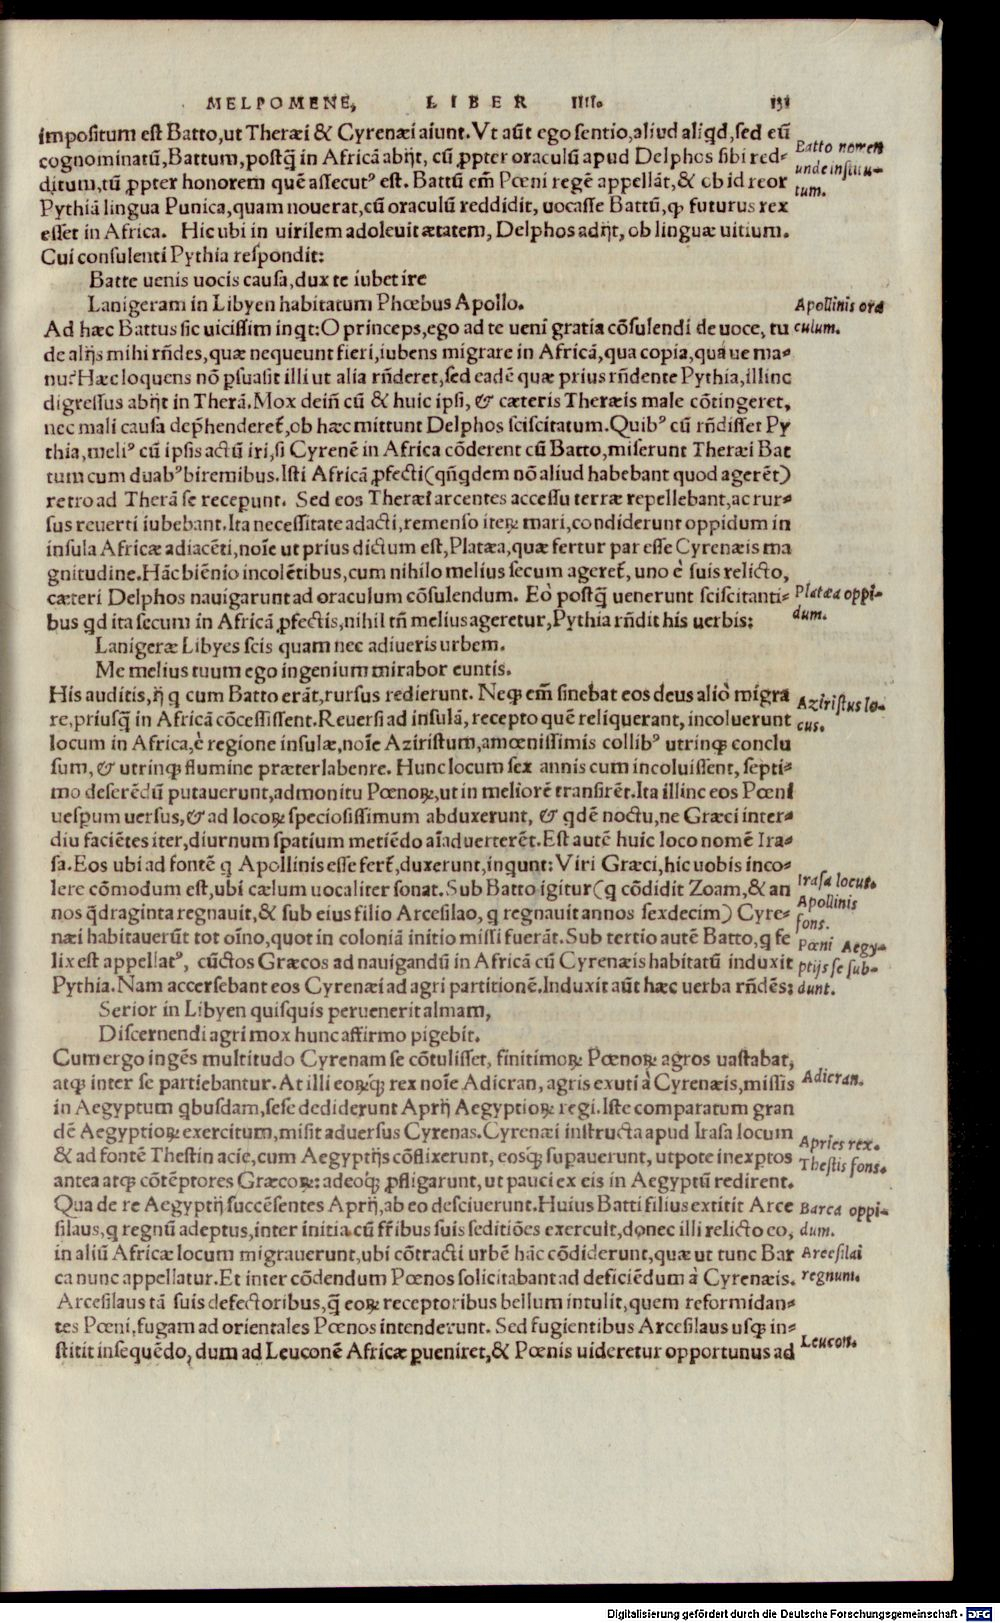 MELPOMENE, LIBER IIII. 131
impositum est Batto, ut Theræi & Cyrenæi aiunt. Vt aūt ego sentio, aliud aliqd, sed eū
cognominatū, Battum, postq̃ in Africā abijt, cū ꝓpter oraculū apud Delphos sibi red=
ditum, tū ꝓpter honorem quē assecutꝰ est. Battū em̃ Pœni regē appellāt, & ob id reor
Pythiā lingua Punica, quam nouerat, cū oraculū reddidit, uocasse Battū, ꝙ futurus rex
esset in Africa. Hic ubi in uirilem adoleuit ætatem, Delphos adijt, ob linguæ uitium.
Cui consulenti Pythia respondit:
Batte uenis uocis causa, dux te iubet ire
Lanigeram in Libyen habitatum Phœbus Apollo.
Ad hæc Battus sic uicissim inqt: O princeps, ego ad te ueni gratia cōsulendi de uoce, tu
de alijs mihi rñdes, quæ nequeunt fieri, iubens migrare in Africā, qua copia, qua ue ma=
nu? Hæc loquens nō ꝑsuasit illi ut alia rñderet, sed eadē quæ prius rñdente Pythia, illinc
digressus abijt in Therā. Mox deiñ cū & huic ipsi, & cæteris Theræis male cōtingeret,
nec mali causa dep̃henderet᷑, ob hæc mittunt Delphos sciscitatum. Quibꝰ cū rñdisset Py
thia, meliꝰ cū ipsis actū iri, si Cyrenē in Africa cōderent cū Batto, miserunt Theræi Bat
tum cum duabꝰ biremibus. Isti Africā ꝓfecti (qñqdem nō aliud habebant quod agerēt)
retro ad Therā se recepunt. Sed eos Theræi arcentes accessu terræ repellebant, ac rur=
sus reuerti iubebant. Ita necessitate adacti, remenso iteꝝ mari, condiderunt oppidum in
insula Africæ adiacēti, noīe ut prius dictum est, Platæa, quæ fertur par esse Cyrenæis ma
gnitudine. Hāc biēnio incolētibus, cum nihilo melius secum ageret᷑, uno è suis relicto,
cæteri Delphos nauigarunt ad oraculum cōsulendum. Eò postq̃ uenerunt sciscitanti=
bus qd ita secum in Africā ꝓfectis, nihil tñ melius ageretur, Pythia rñdit his uerbis:
Lanigeræ Libyes scis quam nec adiueris urbem.
Me melius tuum ego ingenium mirabor euntis.
His auditis, ij q cum Batto erāt, rursus redierunt. Neqꝫ em̃ sinebat eos deus aliò migra
re, priusq̃ in Africā cōcessissent. Reuersi ad insulā, recepto quē reliquerant, incoluerunt
locum in Africa, è regione insulæ, noīe Aziristum, amœnissimis collibꝰ utrinqꝫ conclu
sum, & utrinqꝫ flumine præterlabente. Hunc locum sex annis cum incoluissent, septi=
mo deserēdū putauerunt, admonitu Pœnoꝝ, ut in meliorē transirēt. Ita illinc eos Pœni
uesꝑum uersus, & ad locoꝝ speciosissimum abduxerunt, & qdē noctu, ne Græci inter=
diu faciētes iter, diurnum spatium metiēdo aīaduerterēt. Est autē huic loco nomē Ira=
sa. Eos ubi ad fontē q Apollinis esse fert᷑, duxerunt, inqunt: Viri Græci, hic uobis inco=
lere cōmodum est, ubi cælum uocaliter sonat. Sub Batto igitur (q cōdidit Zoam, & an
nos q̃draginta regnauit, & sub eius filio Arcesilao, q regnauit annos sexdecim) Cyre=
næi habitauerūt tot oīno, quot in coloniā initio missi fuerāt. Sub tertio autē Batto, q fe
lix est appellatꝰ, cūctos Græcos ad nauigandū in Africā cū Cyrenæis habitatū induxit
Pythia. Nam accersebant eos Cyrenæi ad agri partitionē. Induxit aūt hæc uerba rñdēs:
Serior in Libyen quisquis peruenerit almam,
Discernendi agri mox hunc affirmo pigebit.
Cum ergo ingēs multitudo Cyrenam se cōtulisset, finitimoꝝ Pœnoꝝ agros uastabat,
atqꝫ inter se partiebantur. At illi eoꝝqꝫ́ rex noīe Adicran, agris exuti à Cyrenæis, missis
in Aegyptum qbusdam, sese dediderunt Aprij Aegyptioꝝ regi. Iste comparatum gran
dē Aegyptioꝝ exercitum, misit aduersus Cyrenas. Cyrenæi instructa apud Irasa locum
& ad fontē Thestin acie, cum Aegyptijs cōflixerunt, eosqꝫ suꝑauerunt, utpote inexꝑtos
antea atqꝫ cōtēptores Græcoꝝ: adeoqꝫ́ ꝓfligarunt, ut pauci ex eis in Aegyptū redirent.
Qua de re Aegyptij succēsentes Aprij, ab eo desciuerunt. Huius Batti filius extitit Arce
silaus, q regnū adeptus, inter initia cū fr̄ibus suis seditiōes exercuit, donec illi relicto eo,
in aliū Africæ locum migrauerunt, ubi cōtracti urbē hāc cōdiderunt, quæ ut tunc Bar
ca nunc appellatur. Et inter cōdendum Pœnos solicitabant ad deficiēdum à Cyrenæis.
Arcesilaus tā suis defectoribus, q̃ eoꝝ receptoribus bellum intulit, quem reformidan=
tes Pœni, fugam ad orientales Pœnos intenderunt. Sed fugientibus Arcesilaus usqꝫ in=
stitit insequēdo, dum ad Leuconē Africæ ꝑueniret, & Pœnis uideretur opportunus ad
Batto nomen
unde institu=
tum.
Apollinis ora
culum.
Platæa oppi=
dum.
Aziristus lo=
cus.
Irasa locus.
Apollinis
fons.
Pœni Aegy=
ptijs se sub=
dunt.
Adicran.
Apries rex.
Thestis fons.
Barca oppi=
dum.
Arcesilai
regnum.
Leucon.
Digitalisierung gefördert durch die Deutsche Forschungsgemeinschaft - DFG